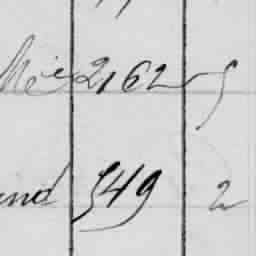 Mée 2162 5
and 549 2